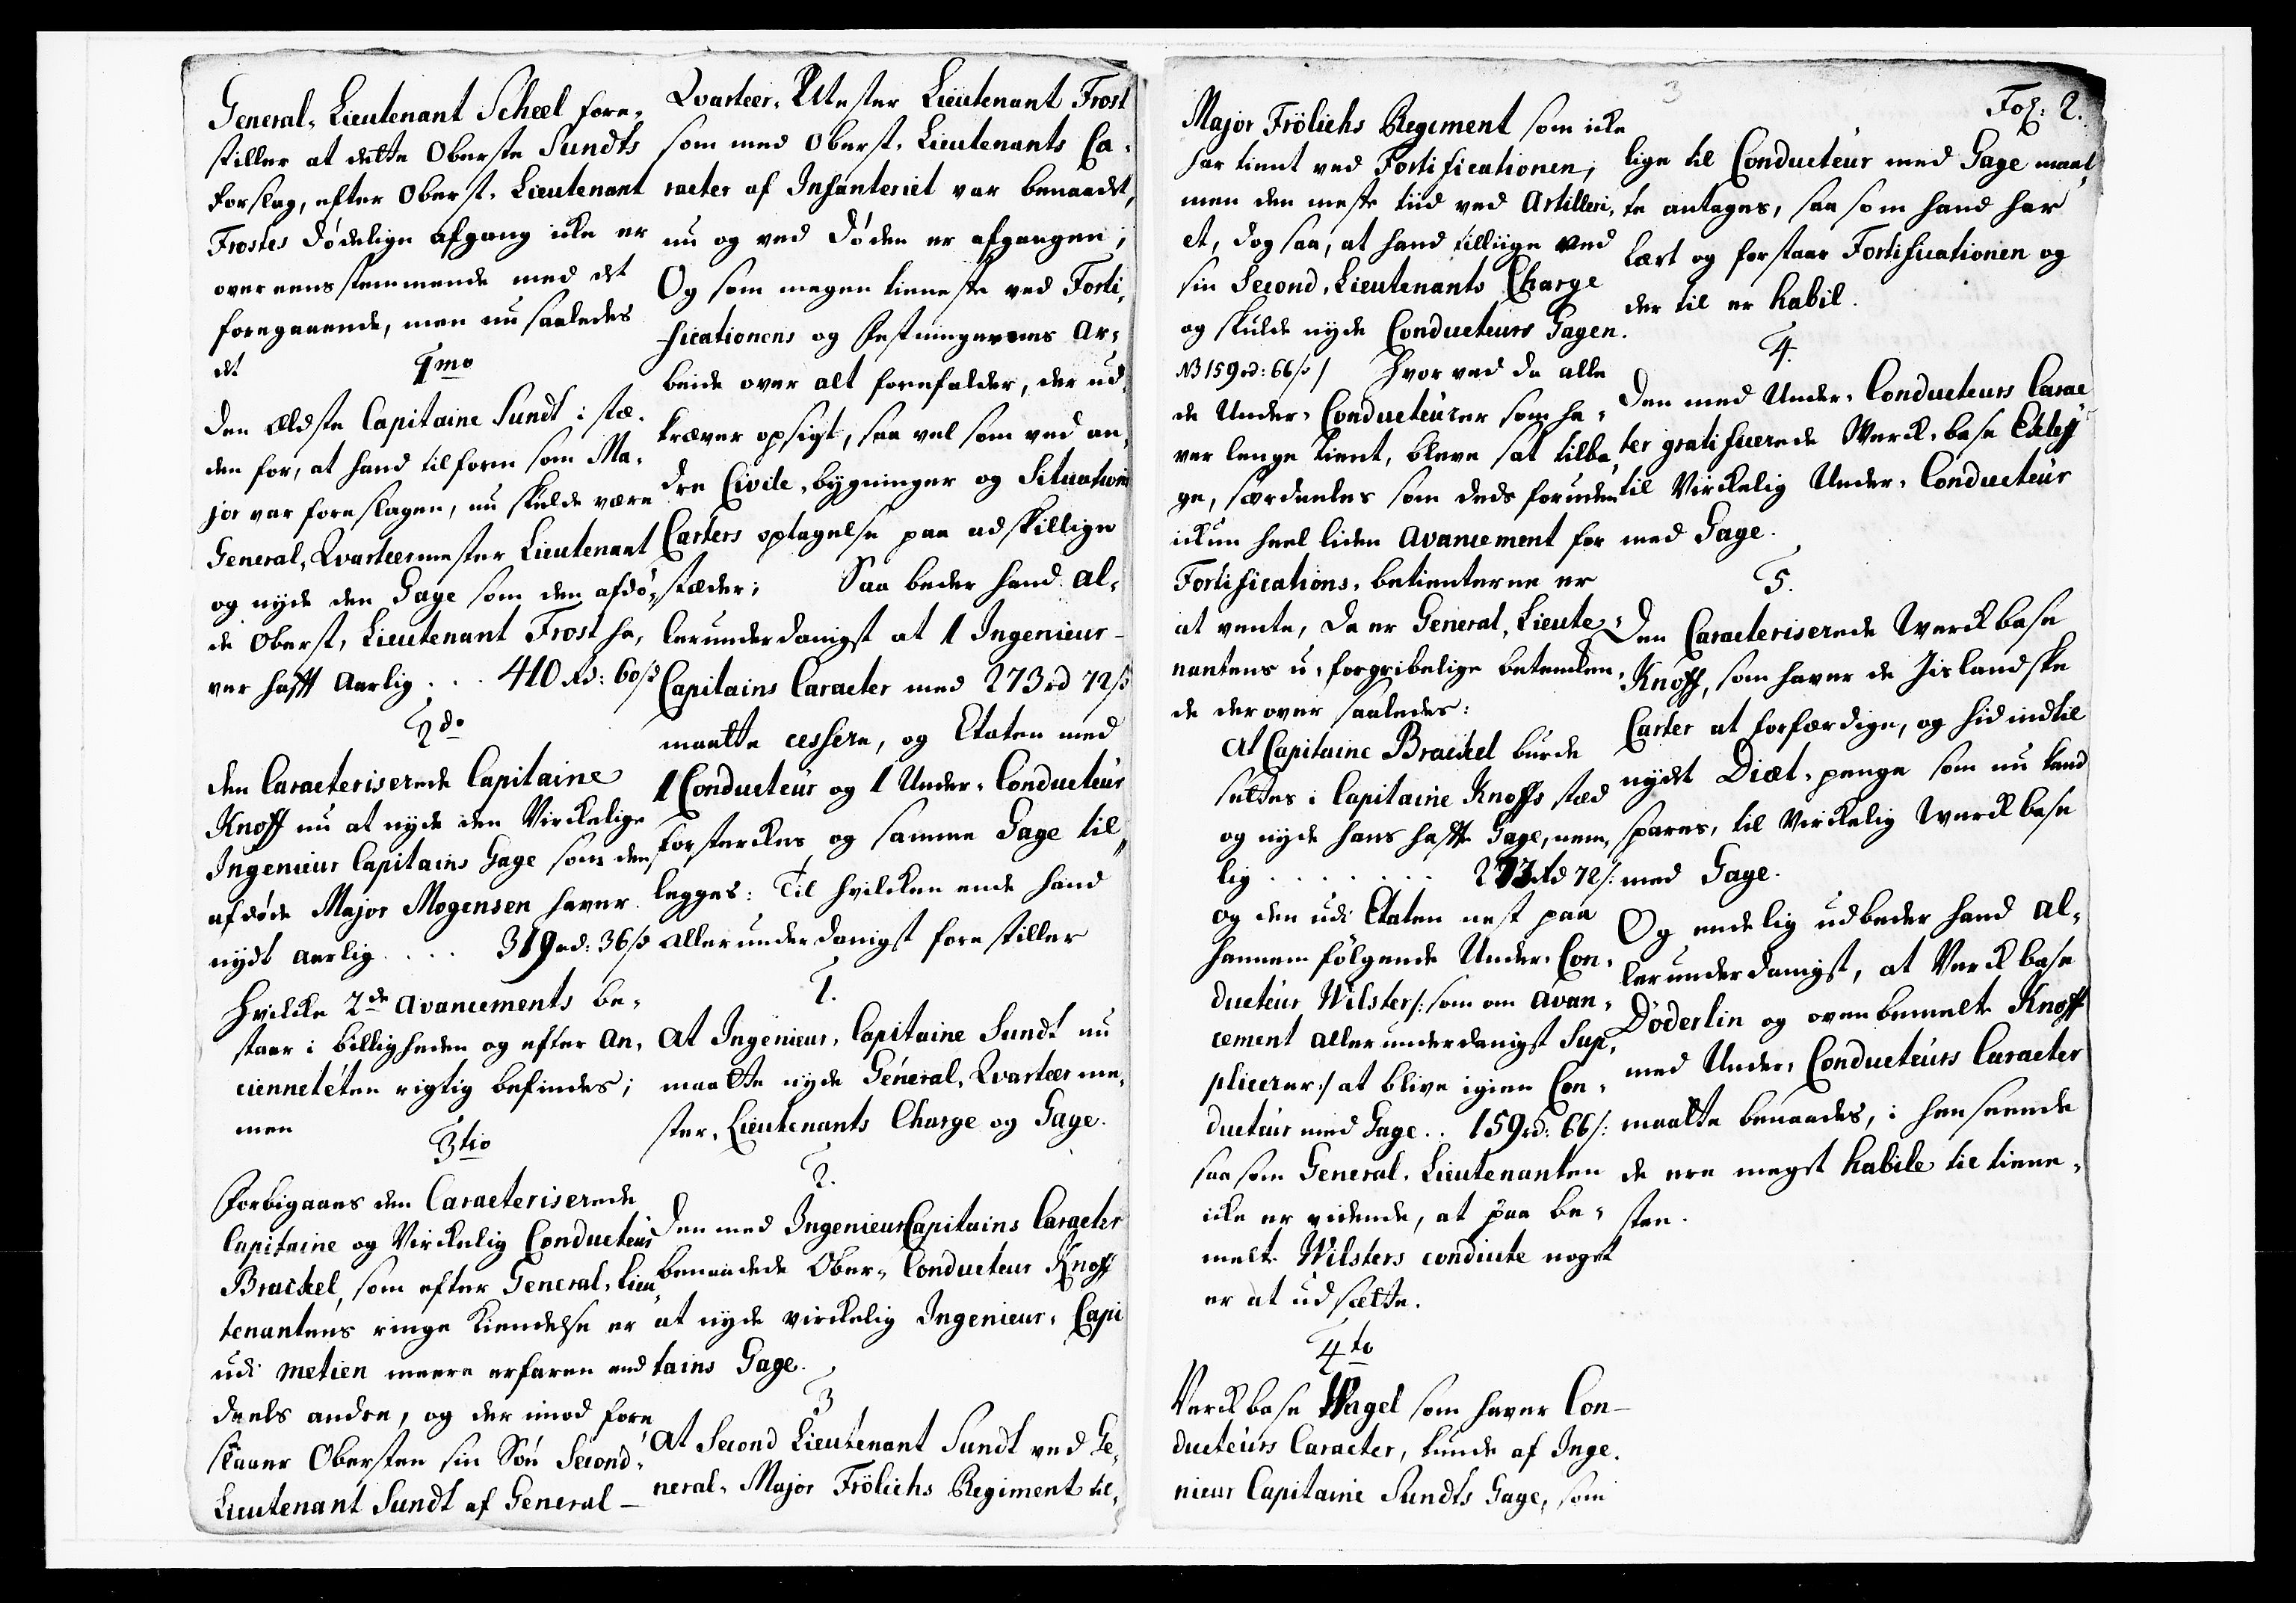 General-Lieutenant Scheel fore-
stiller at dette Oberste Sundts
forslag, efter Oberst-Lieutenant
Frostes dødelige afgang icke er
overeensstemmende med det
foregaaende, men nu saaledes
det
1mo
den ældste Capitaine Sundt i stæ-
den for, at hand tilforn som Ma-
jor var foreslagen, nu skulde være
General-Qvarteermester Lieutenant
og nyde den Gage som den afdø-
de Oberst-Lieutenant Frost ha-
ver hafft Aarlig . . . 410 Rd: 60 ß
2do
den Caracteriserede Capitaine
Knoff nu at nyde den Virckelige
Ingenieur Capitains Gage som den
afdøde Major Mogensen haver
nydt Aarlig . . . . 319 rd: 36 ß
Hvilcke 2de Avancements be-
staar i billigheden og efter An-
cienneteten rigtig befindes;
men
3tio
Forbigaaes den Caracteriserede
Capitaine og Virckelig Conducteur
Brackel, som efter General-Lieu-
tenantens ringe Kiendelse er
udi Metien meere erfaren end
deels andre, og der imod fore
slaaer Obersten sin Søn Second-
Lieutenant Sundt af General-
Qvarteer-Mester Lieutenant Frost
som med Oberst-Lieutenants Ca-
racter af Infanteriet var benaadet,
nu og ved Døden er afgangen;
Og som megen tieneste ved Forti-
ficationens og Festningernes Ar-
beide over alt forefalder, der ud-
kræver opsigt, saa vel som ved an-
dre Civile-bygninger og Situations
Carters optagelse paa adskillige
stæder; Saa beder hand al-
lerunderdanigst at 1 Ingenieur-
Capitains Caracter med 273 rd 72 ß
maatte cessere, og Etaten med
1 Conducteur og 1 Under-Conducteur
forsterckes, og samme Gage til-
legges: Til hvilcken ende hand
allerunderdanigst forestiller
1.
At Ingenieur-Capitaine Sundt nu
maatte nyde General-Qvarteerme-
ster-Lieutenants Charge og Gage.
2.
Den med Ingenieur Capitains Caracter
benaadede Ober-Conducteur Knoff
at nyde virckelig Ingenieur-Capi
tains Gage.
3
At Second Lieutenant Sundt ved Ge-
neral-Major Frölichs Regiment til-
3
Major Frölichs Regiment som icke
har tient ved Fortificationen,
men den meste tiid ved Artilleri-
et, dog saa, at hand tilliige ved
sin Second-Lieutenants Charge
og skulde nyde Conducteurs Gagen.
NB 159 rd: 66 ß / Hvorved da alle
de Under-Conducteurer som ha-
ver lenge tient, bleve sat tilba-
ge, særdeeles som deds foruden
ickun heel liden Avancement for
Fortifications-betienterne er
at vente, da er General-Lieute-
nantens u-forgribelige betenken-
de derover saaledes:
At Capitaine Brackel burde
settes i Capitaine Knoffs stæd
og nyde hans hafte Gage, nem-
lig . . . . . . . 273 Rd 72 ß:
og den udi Etaten nest paa
hannem følgende Under-Con-
ducteur Wilster /: som om Avan-
cement allerunderdanigst Sup-
plicerer :/ at blive igien Con-
ducteur med Gage . . 159 rd: 66 ß:
saasom General-Lieutenanten
icke er vidende, at paa be-
melte Wilsters conduite noget
er at udsætte.
4to
Verckbase Nagel som haver Con-
ducteurs Caracter, kunde af Inge-
nieur Capitaine Sundts Gage, som
Fol: 2.
lige til Conducteur med Gage maat
te antages, saasom hand har
lært og forstaar Fortificationen og
der til er habil.
4.
Den med Under-Conducteurs Carac
ter gratificerede Werck-base
til Virckelig Under-Conducteur
med Gage.
5.
Den Caracteriserede Werckbase
Knoff, som haver de Jislandske
Carter at forfærdige, og hid indtil
nydt Diæt-penge som nu kand
spares, til Virckelig Werckbase
med Gage.
Og endelig udbeder hand al-
lerunderdanigst, at Verckbase
Döderlin og ovenbemelte Knoff
med Under-Conducteurs Caracter
maatte benaades, i henseende
de ere meget habile til tiene-
sten.